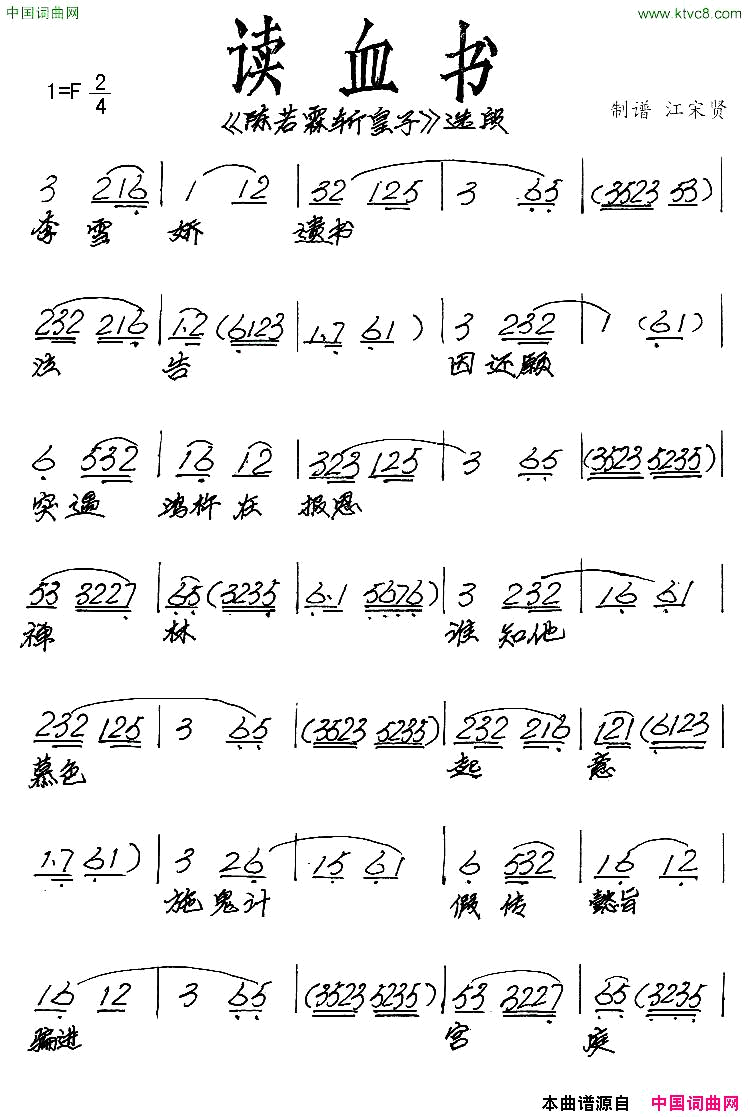 中国词曲网
www.ktvc8.com
读血书
1=F 2/4
《陈若霖斩皇子》选段
制谱 江宋贤
3 216 | 1 12 | 32 125 | 3 65 | (3523 53) |
李雪娇 遗书
232 216 | 1.2 (6123 | 1.7 61) | 3 232 | 1 (61) |
泣告 因还愿
6 532 | 16 12 | 323 125 | 3 65 | (3523 5235) |
突遇 鸿杵在报恩
53 3227 | 65 (3235 | 6.1 5676) | 3 232 | 16 61 |
禅林 谁知他
232 125 | 3 65 | (3523 5235) | 232 216 | 121 (6123 |
慕色 起意
1.7 61) | 3 26 | 15 61 | 6 532 | 16 12 |
施鬼计 假传懿旨
16 12 | 3 65 | (3523 5235) | 53 3227 | 65 (3235 |
骗进 宫庭
本曲谱源自 中国词曲网